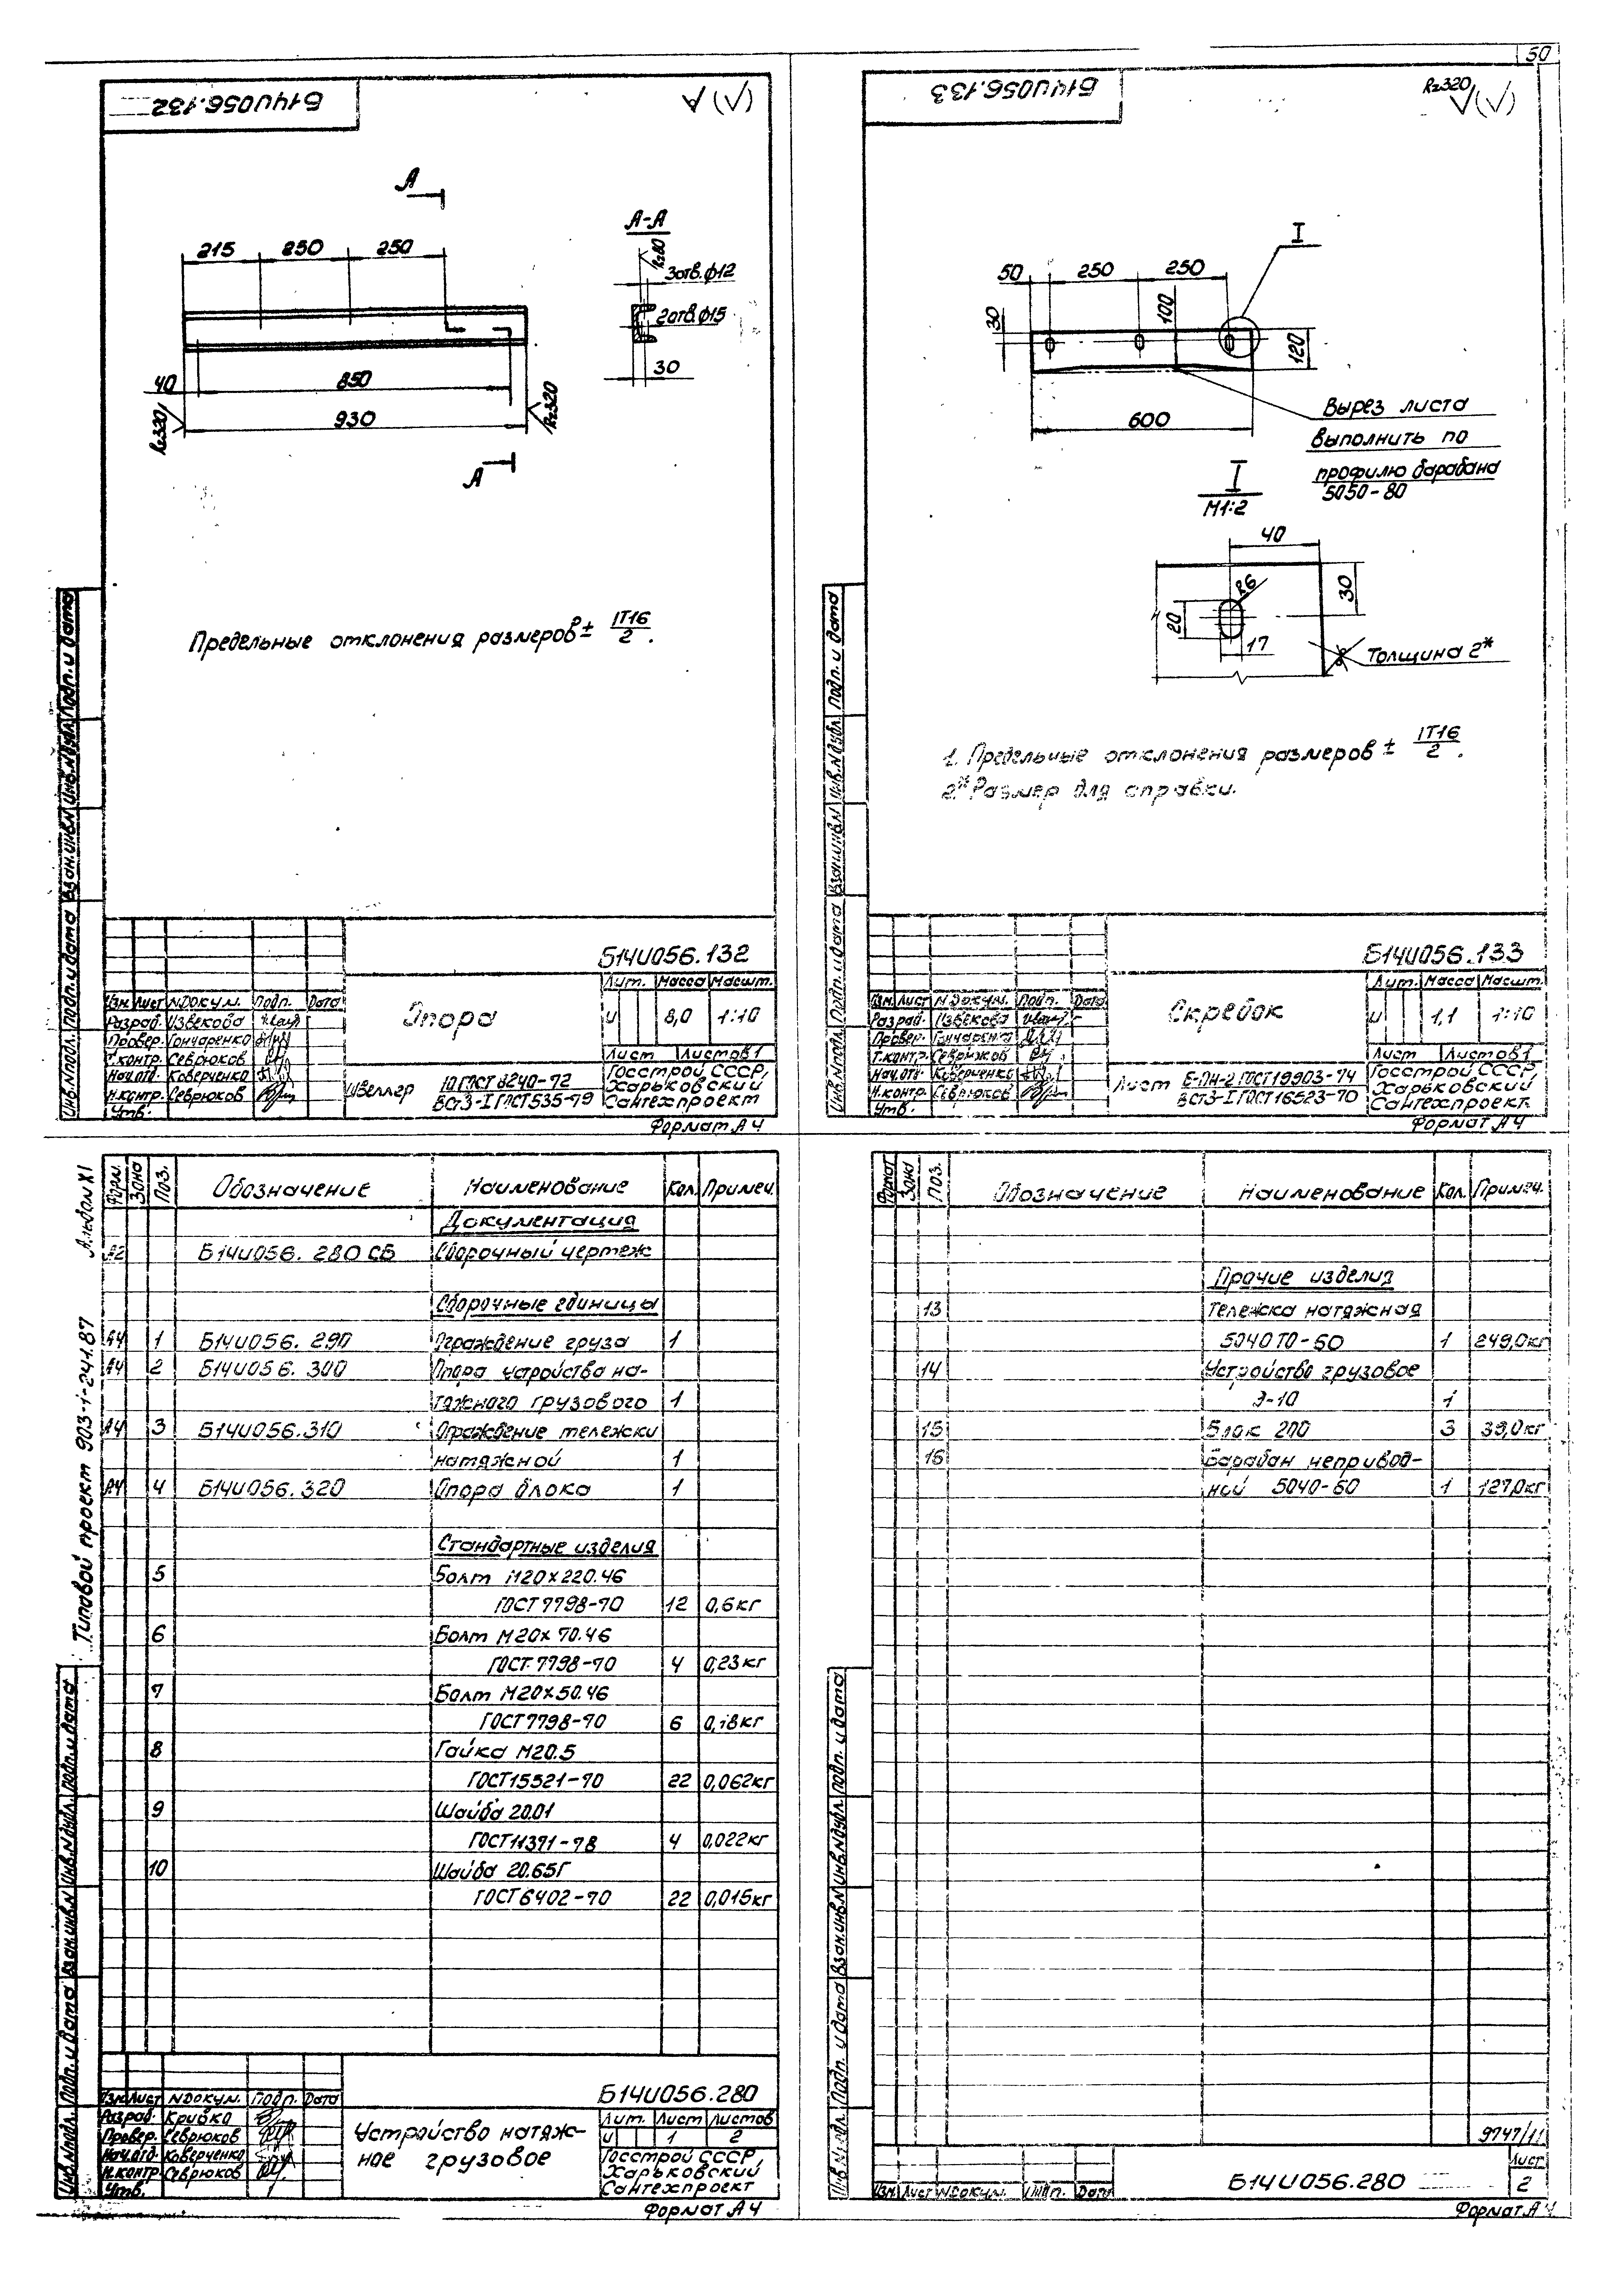 50
Б14U056.132
√(√)
А
215
250
250
А-А
Rz80
3 отв. ф12
2 отв. ф15
30
40
850
930
Rz320
Rz320
А
Предельные отклонения размеров ± IT16/2.
Инв.N подл.
Подп. и дата
Взам.инв.N
Инв.N дубл.
Подп. и дата
Б14U056.132
Изм. Лист N докум. Подп. Дата
Разраб. Извекова
Провер. Гончаренко
Т.контр. Севрюков
Нач.отд. Коверченко
Н.контр. Севрюков
Утв.
Опора
Лит. Масса Масшт.
И 8,0 1:10
Лист Листов 1
Швеллер 10 ГОСТ 8240-72
ВСт3-I ГОСТ 535-79
Госстрой СССР,
Харьковский
Сантехпроект
Формат А4
Б14U056.133
Rz320
√(√)
I
50
250
250
30
100
120
600
Вырез листа
выполнить по
профилю барабана
5050-80
I
М1:2
40
R6
30
20
17
Толщина 2*
1. Предельные отклонения размеров ± IT16/2.
2.* Размер для справки.
Инв.N подл.
Подп. и дата
Взам.инв.N
Инв.N дубл.
Подп. и дата
Б14U056.133
Изм. Лист N докум. Подп. Дата
Разраб. Извекова
Провер. Гончаренко
Т.контр. Севрюков
Нач.отд. Коверченко
Н.контр. Севрюков
Утв.
Скребок
Лит. Масса Масшт.
И 1,1 1:10
Лист Листов 1
Лист Б-ПН-2 ГОСТ 19903-74
ВСт3-I ГОСТ 16523-70
Госстрой СССР,
Харьковский
Сантехпроект.
Формат А4
Типовой проект 903-1-241.87 Альбом XI
Форм. Зона Поз. Обозначение Наименование Кол. Примеч.
Документация
А2 Б14U056.280 СБ Сборочный чертеж
Сборочные единицы
А4 1 Б14U056.290 Ограждение груза 1
А4 2 Б14U056.300 Опора устройства на-
тяжного грузового 1
А4 3 Б14U056.310 Ограждение тележки
натяжной 1
А4 4 Б14U056.320 Опора блока 1
Стандартные изделия
5 Болт М20×220.46
ГОСТ 7798-70 12 0,6кг
6 Болт М20×70.46
ГОСТ 7798-70 4 0,23кг
7 Болт М20×50.46
ГОСТ 7798-70 6 0,18кг
8 Гайка М20.5
ГОСТ 15521-70 22 0,062кг
9 Шайба 20.01
ГОСТ 11371-78 4 0,022кг
10 Шайба 20.65Г
ГОСТ 6402-70 22 0,015кг
Инв.N подл.
Подп. и дата
Взам.инв.N
Инв.N дубл.
Подп. и дата
Б14U056.280
Изм. Лист N докум. Подп. Дата
Разраб. Кривко
Провер. Севрюков
Нач.отд. Коверченко
Н.контр. Севрюков
Утв.
Устройство натяж-
ное грузовое
Лит. Лист Листов
И 1 2
Госстрой СССР,
Харьковский
Сантехпроект
Формат А4
Формат Зона Поз. Обозначение Наименование Кол. Примеч.
Прочие изделия
13 Тележка натяжная
5040 ТО-60 1 249,0кг
14 Устройство грузовое
Э-10 1
15 Блок 200 3 39,0кг
16 Барабан непривод-
ной 5040-60 1 127,0кг
Инв.N подл.
Подп. и дата
Взам.инв.N
Инв.N дубл.
Подп. и дата
9747/11
Изм. Лист N докум. Подп. Дата
Б14U056.280
Лист
2
Формат А4